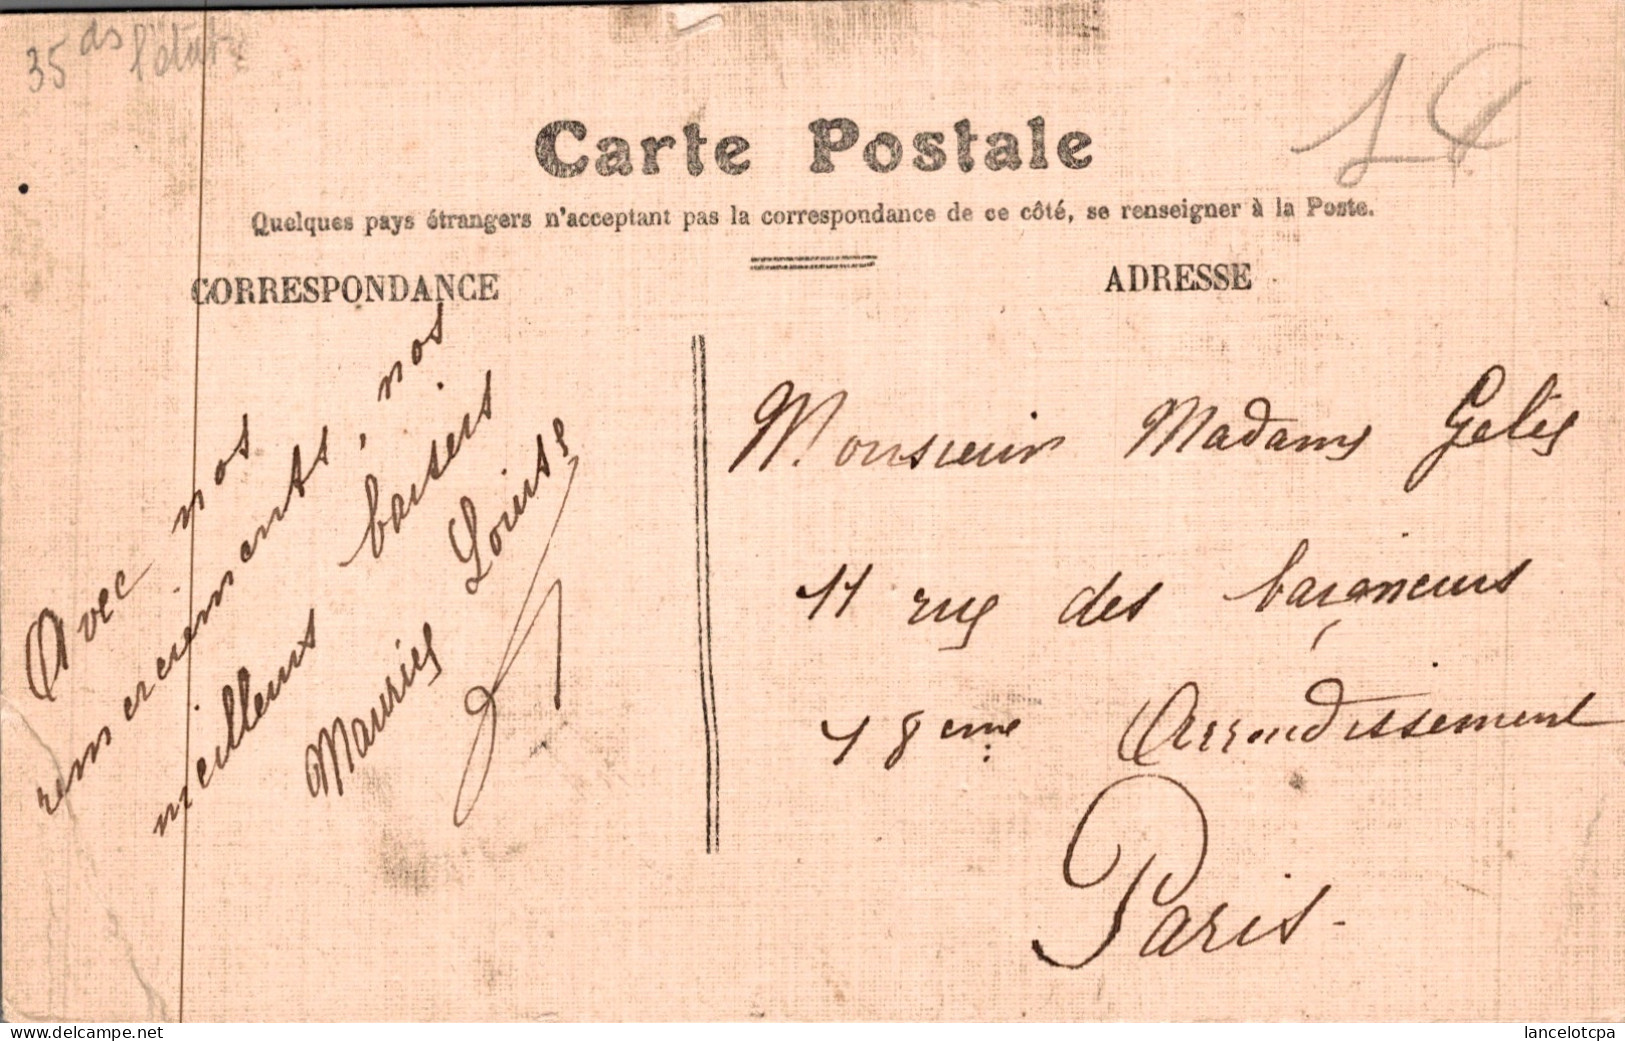 35 ds l'état
Carte Postale
Quelques pays étrangers n'acceptant pas la correspondance de ce côté, se renseigner à la Poste.
CORRESPONDANCE
ADRESSE
Avec nos
remerciements, nos
meilleurs baisers
Maurice Louise
Monsieur Madame Gelis
11 rue des baigneurs
18eme Arrondissement
Paris.
www.delcampe.net
lancelotcpa